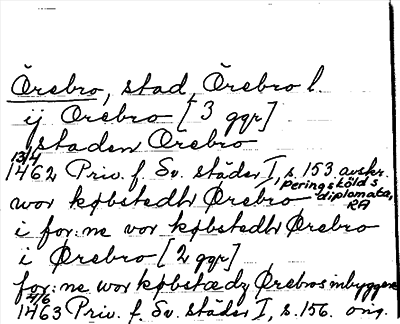 Örebro, stad, Örebro l.
ij Orebro [3 ggr]
staden Orebro
13/4
1462 Priv. f. Sv. städer I, s. 153. avskr.
Peringskölds
wor købstedh Ørebro diplomatar,
RA
i for:ne vor købstedh Ørebro
i Ørebro [2 ggr]
for:ne wor købstædz Ørebros inbyggere
4/6
1463 Priv. f. Sv. städer I, s. 156. orig.